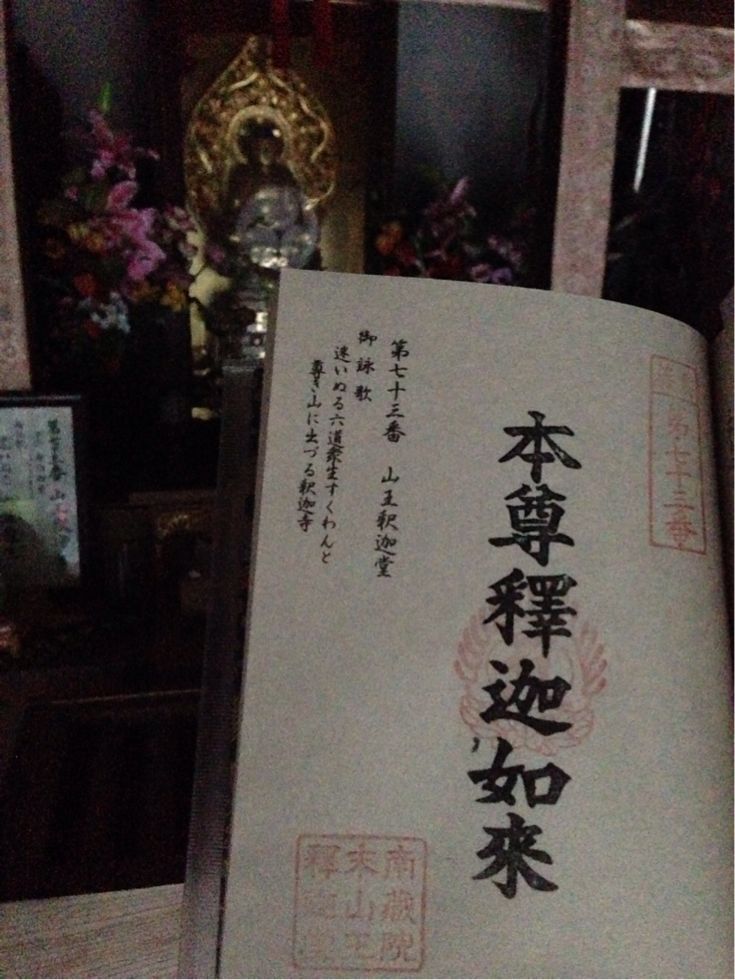 第七十三番
本尊釋迦如來
第七十三番　山王釈迦堂
御詠歌
迷いぬる六道衆生すくわんと
尊き山に出づる釈迦寺
南蔵院
末山王
釋迦堂
第七十三番　山